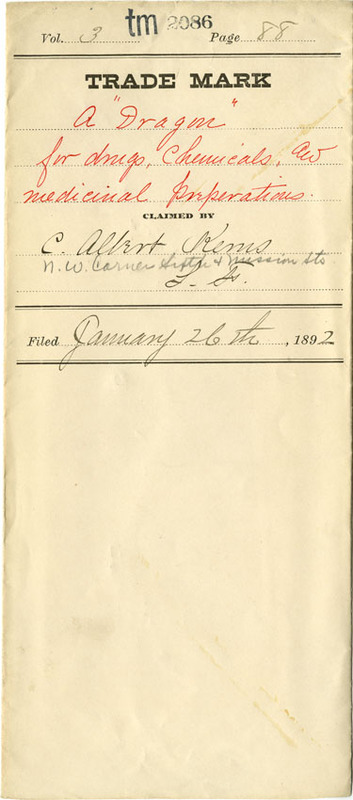 tm 2086
Vol. 3 Page 88
TRADE MARK
A "Dragon"
for drugs, Chemicals, and
medicinal preperations.
CLAIMED BY
C. Albert Kerns
N.W. Corner Sixth & Mission Sts.
S. F.
Filed January 26th, 1892